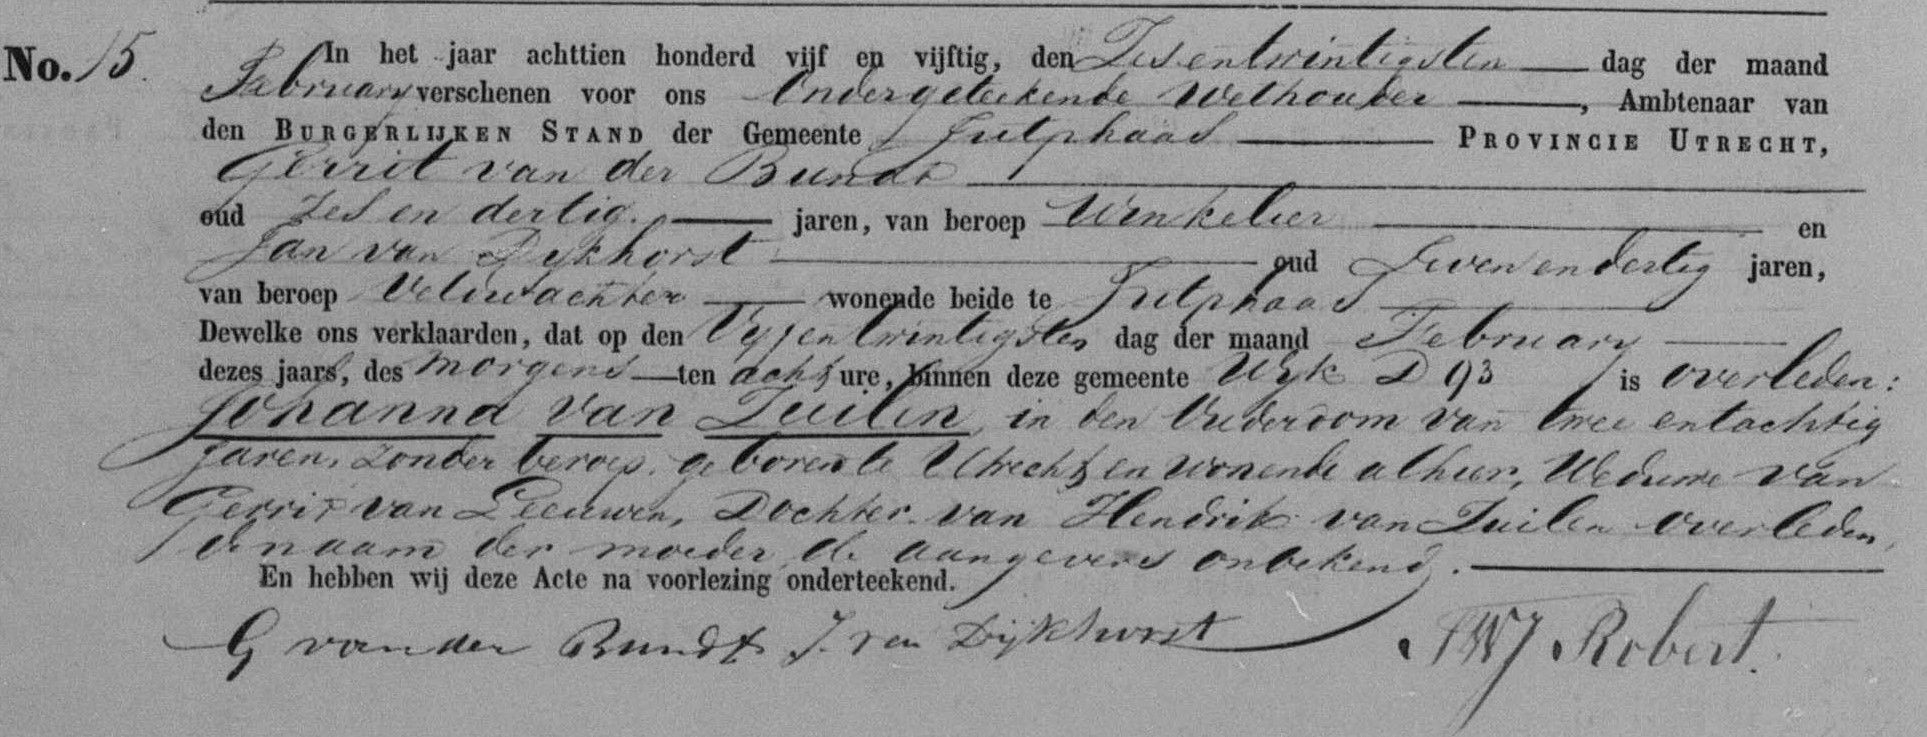 No. 15. In het jaar achttien honderd vijf en vijftig, den Zesentwintigsten dag der maand
February verschenen voor ons Ondergeteekende Wethouder, Ambtenaar van
den BURGERLIJKEN STAND der Gemeente Jutphaas PROVINCIE UTRECHT,
Gerrit van der Bundt
oud Zes en dertig. jaren, van beroep Winkelier en
Jan van Dijkhorst oud Zeven en dertig jaren,
van beroep Veldwachter wonende beide te Jutphaas
Dewelke ons verklaarden, dat op den Vyfentwintigsten dag der maand February
dezes jaars, des morgens ten acht ure, binnen deze gemeente Wyk D 93 is overleden:
Johanna van Tuilen, in den Ouderdom van twee entachtig
Jaren, zonder beroep. geboren te Utrecht en wonende alhier, Weduwe van
Gerrit van Leeuwen, Dochter van Hendrik van Tuilen overleden,
de naam der moeder, de aangevers onbekend.
En hebben wij deze Acte na voorlezing onderteekend.
G van der Bundt J. van Dijkhorst Robert.